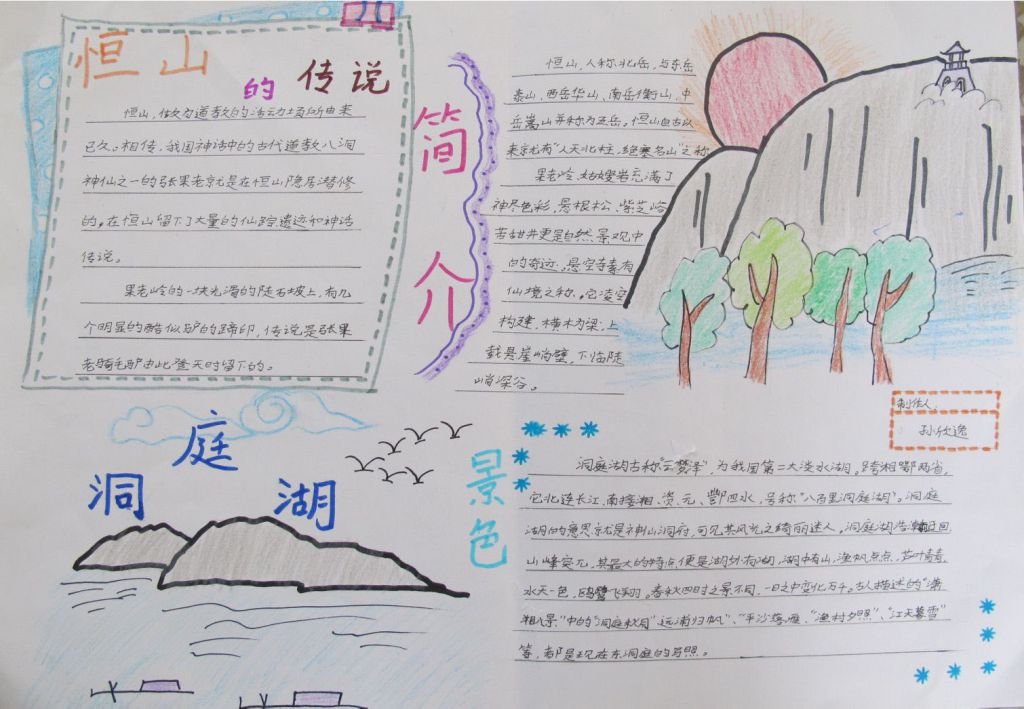 恒山的传说
恒山，做为道教的活动场所由来
已久。相传，我国神话中的古代道教八洞
神仙之一的张果老就是在恒山隐居潜修
的。在恒山留下了大量的仙踪遗迹和神话
传说。
果老岭的一块光滑的陡石坡上，有几
个明显的酷似驴的蹄印，传说是张果
老骑毛驴由此登天时留下的。
简介
恒山，人称北岳，与东岳
泰山，西岳华山、南岳衡山、中
岳嵩山并称为五岳。恒山自古以
来就有“人天北柱，绝塞名山”之称
果老岭、姑嫂岩充满了
神尽色彩，悬根松、紫芝峪
苦甜井更是自然景观中
的奇迹。悬空寺素有
仙境之称。它凌空
构建，横木为梁，上
载悬崖峭壁，下临陡
峭深谷。
制作人
孙欣逸
洞庭湖
景色
洞庭湖古称“云梦泽”，为我国第二大淡水湖。跨相鄂两省，
它北连长江，南接湘、资、元、酆四水，号称“八百里洞庭湖”。洞庭
湖的意思就是神山洞府，可见其风光之绮丽迷人。洞庭湖浩瀚迂回，
山峰突兀，其最大的特点便是湖外有湖，湖中有山，渔帆点点，芦叶青青，
水天一色，鸥鹭飞翔。春秋四时之景不同，一日之中变化万千。古人描述的“潇
湘八景”中的“洞庭秋月”远浦归帆”、“平沙落雁、“渔村夕照”、“江天暮雪”
等，都是现在东洞庭的写照。